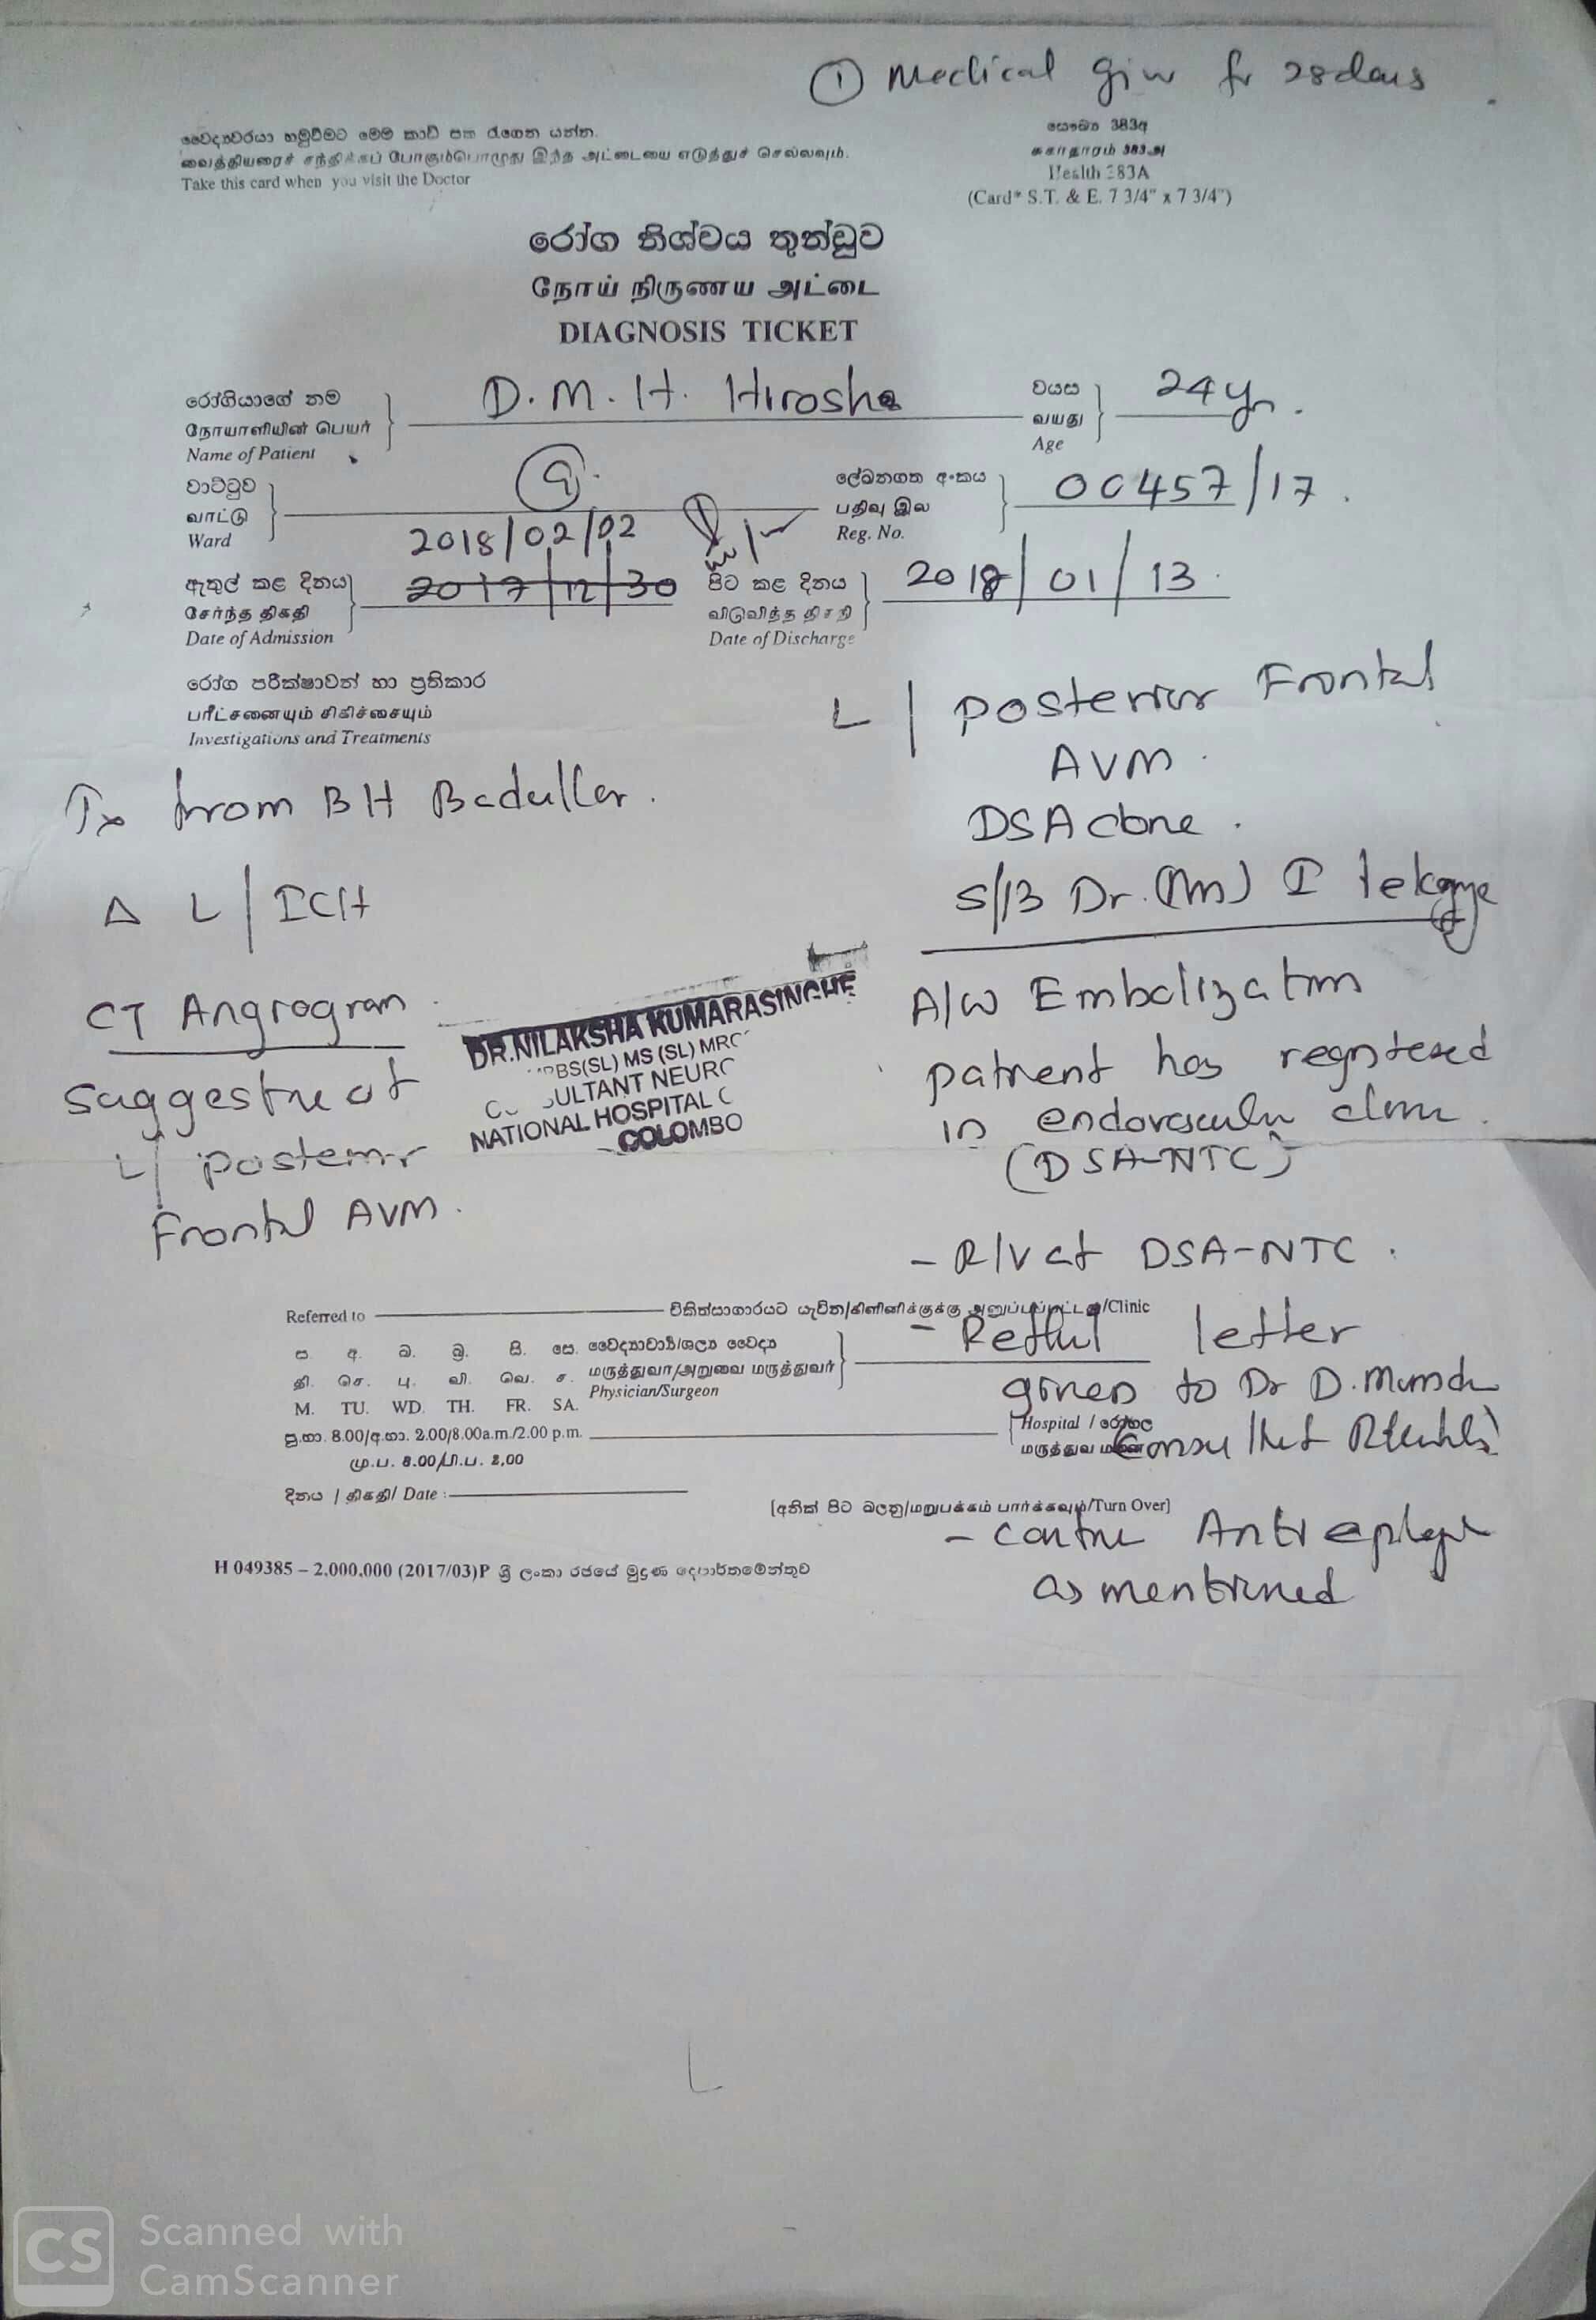 ① Medical given for 28 days
වෛද්‍යවරයා හමුවීමට මෙම කාඩ් පත රැගෙන යන්න.
வைத்தியரைச் சந்திக்கப் போகும்பொழுது இந்த அட்டையை எடுத்துச் செல்லவும்.
Take this card when you visit the Doctor
සෞඛ්‍ය 383අ
சுகாதாரம் 383அ
Health 283A
(Card* S.T. & E. 7 3/4" x 7 3/4")
රෝග නිශ්චය තුන්ඩුව
நோய் நிருணய அட்டை
DIAGNOSIS TICKET
රෝගියාගේ නම
நோயாளியின் பெயர்
Name of Patient
D.M.H. Hirosha
වයස
வயது
Age
24 yr.
වාට්ටුව
வாட்டு
Ward
9
ලේඛනගත අංකය
பதிவு இல
Reg. No.
00457/17.
2018/02/02
ඇතුල් කළ දිනය
சேர்ந்த திகதி
Date of Admission
2017/12/30
පිට කළ දිනය
விடுவித்த திகதி
Date of Discharge
2018/01/13
රෝග පරීක්ෂාවන් හා ප්‍රතිකාර
பரீட்சனையும் சிகிச்சையும்
Investigations and Treatments
Tx from BH Badulla.
Δ L/ICH
CT Angiogram
Suggestive of
L/ posterior
Frontal AVM.
DR.NILAKSHA KUMARASINGHE
BBS(SL) MS (SL) MRC
SULTANT NEURO
NATIONAL HOSPITAL
COLOMBO
L/ posterior Frontal
AVM.
DSA done.
S/B Dr. (Mrs)
A/W Embolization
patient has registered
in endovascular clinic.
(DSA-NTC)
- R/V at DSA-NTC.
Referred to
චිකිත්සාගාරයට යැවින/கிளினிக்குக்கு அனுப்பப்பட்டது/Clinic
- letter
given to Dr D.
ස. අ. බ. බ්‍ර. සි. සෙ.
වෛද්‍යාචාර්ය/ශල්‍ය වෛද්‍ය
தி. செ. பு. வி. வெ. ச.
மருத்துவர்/அறுவை மருத்துவர்
M. TU. WD. TH. FR. SA.
Physician/Surgeon
පූ.භා. 8.00/අ.භා. 2.00/8.00a.m./2.00 p.m.
மு.ப. 8.00/பி.ப. 2.00
Hospital / රෝහල
மருத்துவ மனை
Consultant
දිනය / திகதி/ Date :
[අනික් පිට බලනු/மறுபக்கம் பார்க்கவும்/Turn Over]
- continue Antiepileptic
as mentioned
H 049385 – 2,000,000 (2017/03)P ශ්‍රී ලංකා රජයේ මුද්‍රණ දෙපාර්තමේන්තුව
CS Scanned with
CamScanner